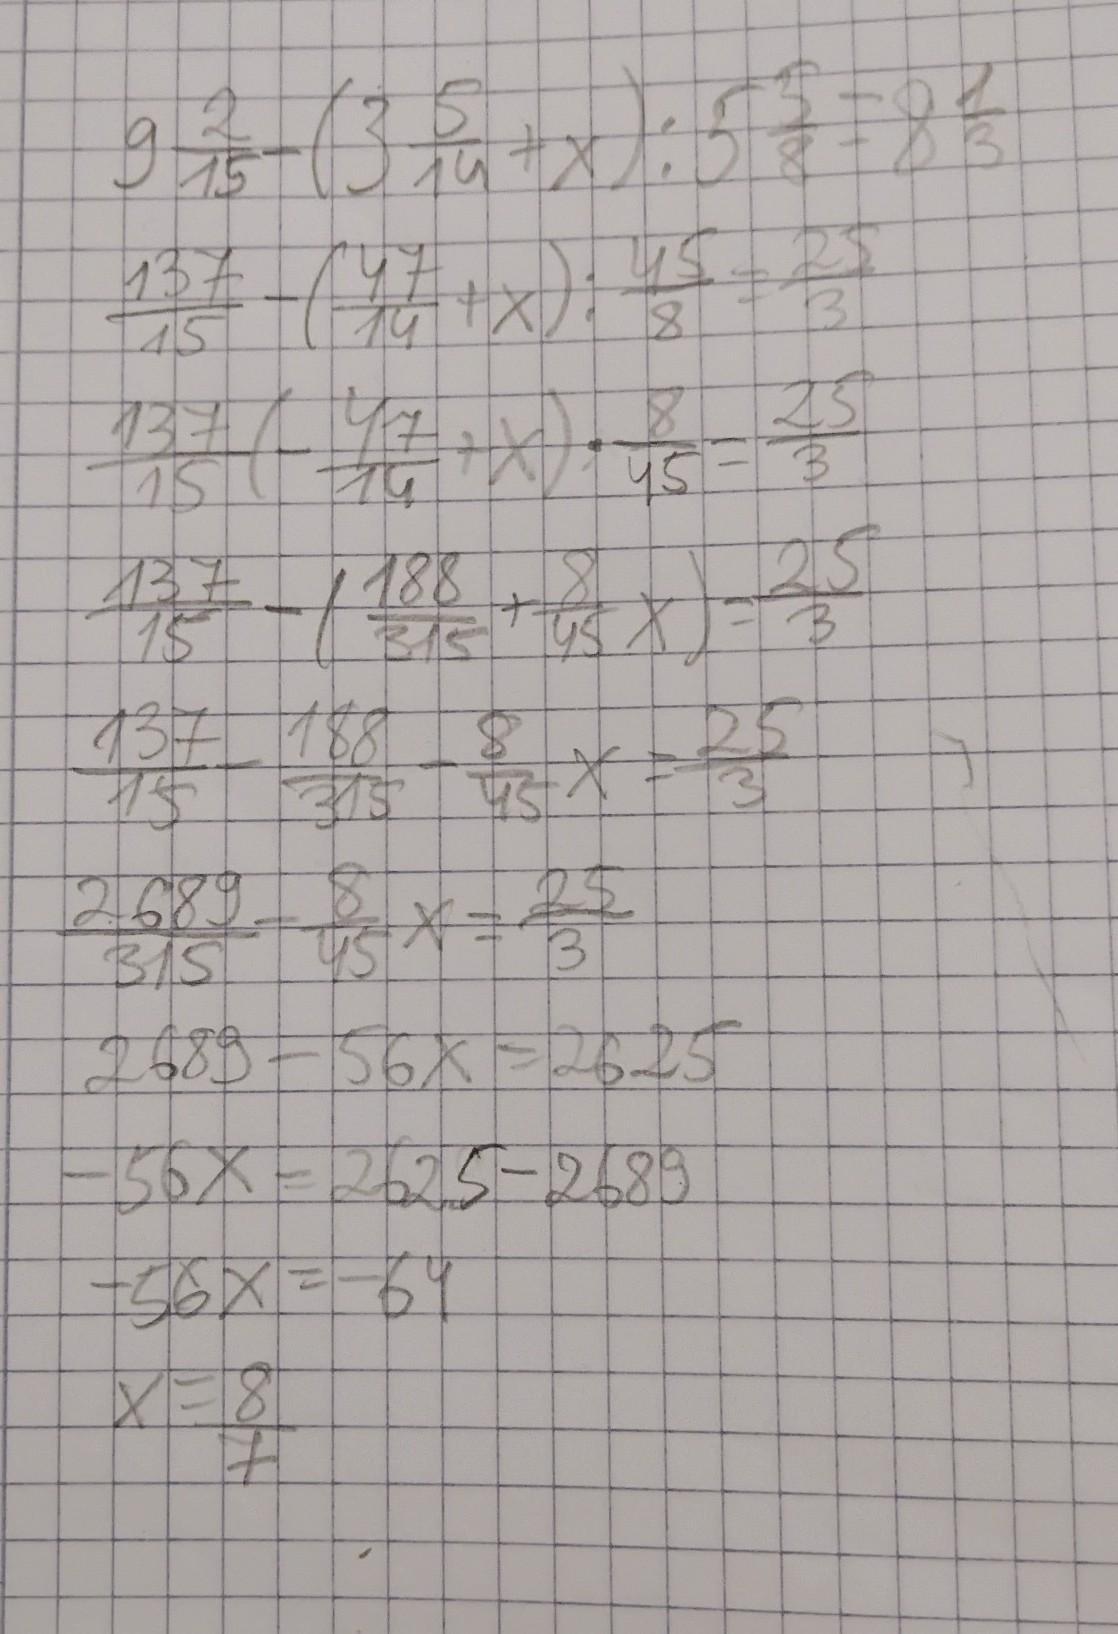 9 2/15 - (3 5/14 + x) : 5 5/8 = 8 1/3
137/15 - (47/14 + x) : 45/8 = 25/3
137/15 (- 47/14 + x) · 8/45 = 25/3
137/15 - (188/315 + 8/45 x) = 25/3
137/15 - 188/315 - 8/45 x = 25/3
2689/315 - 8/45 x = 25/3
2689 - 56x = 2625
-56x = 2625 - 2689
-56x = -64
x = 8/7